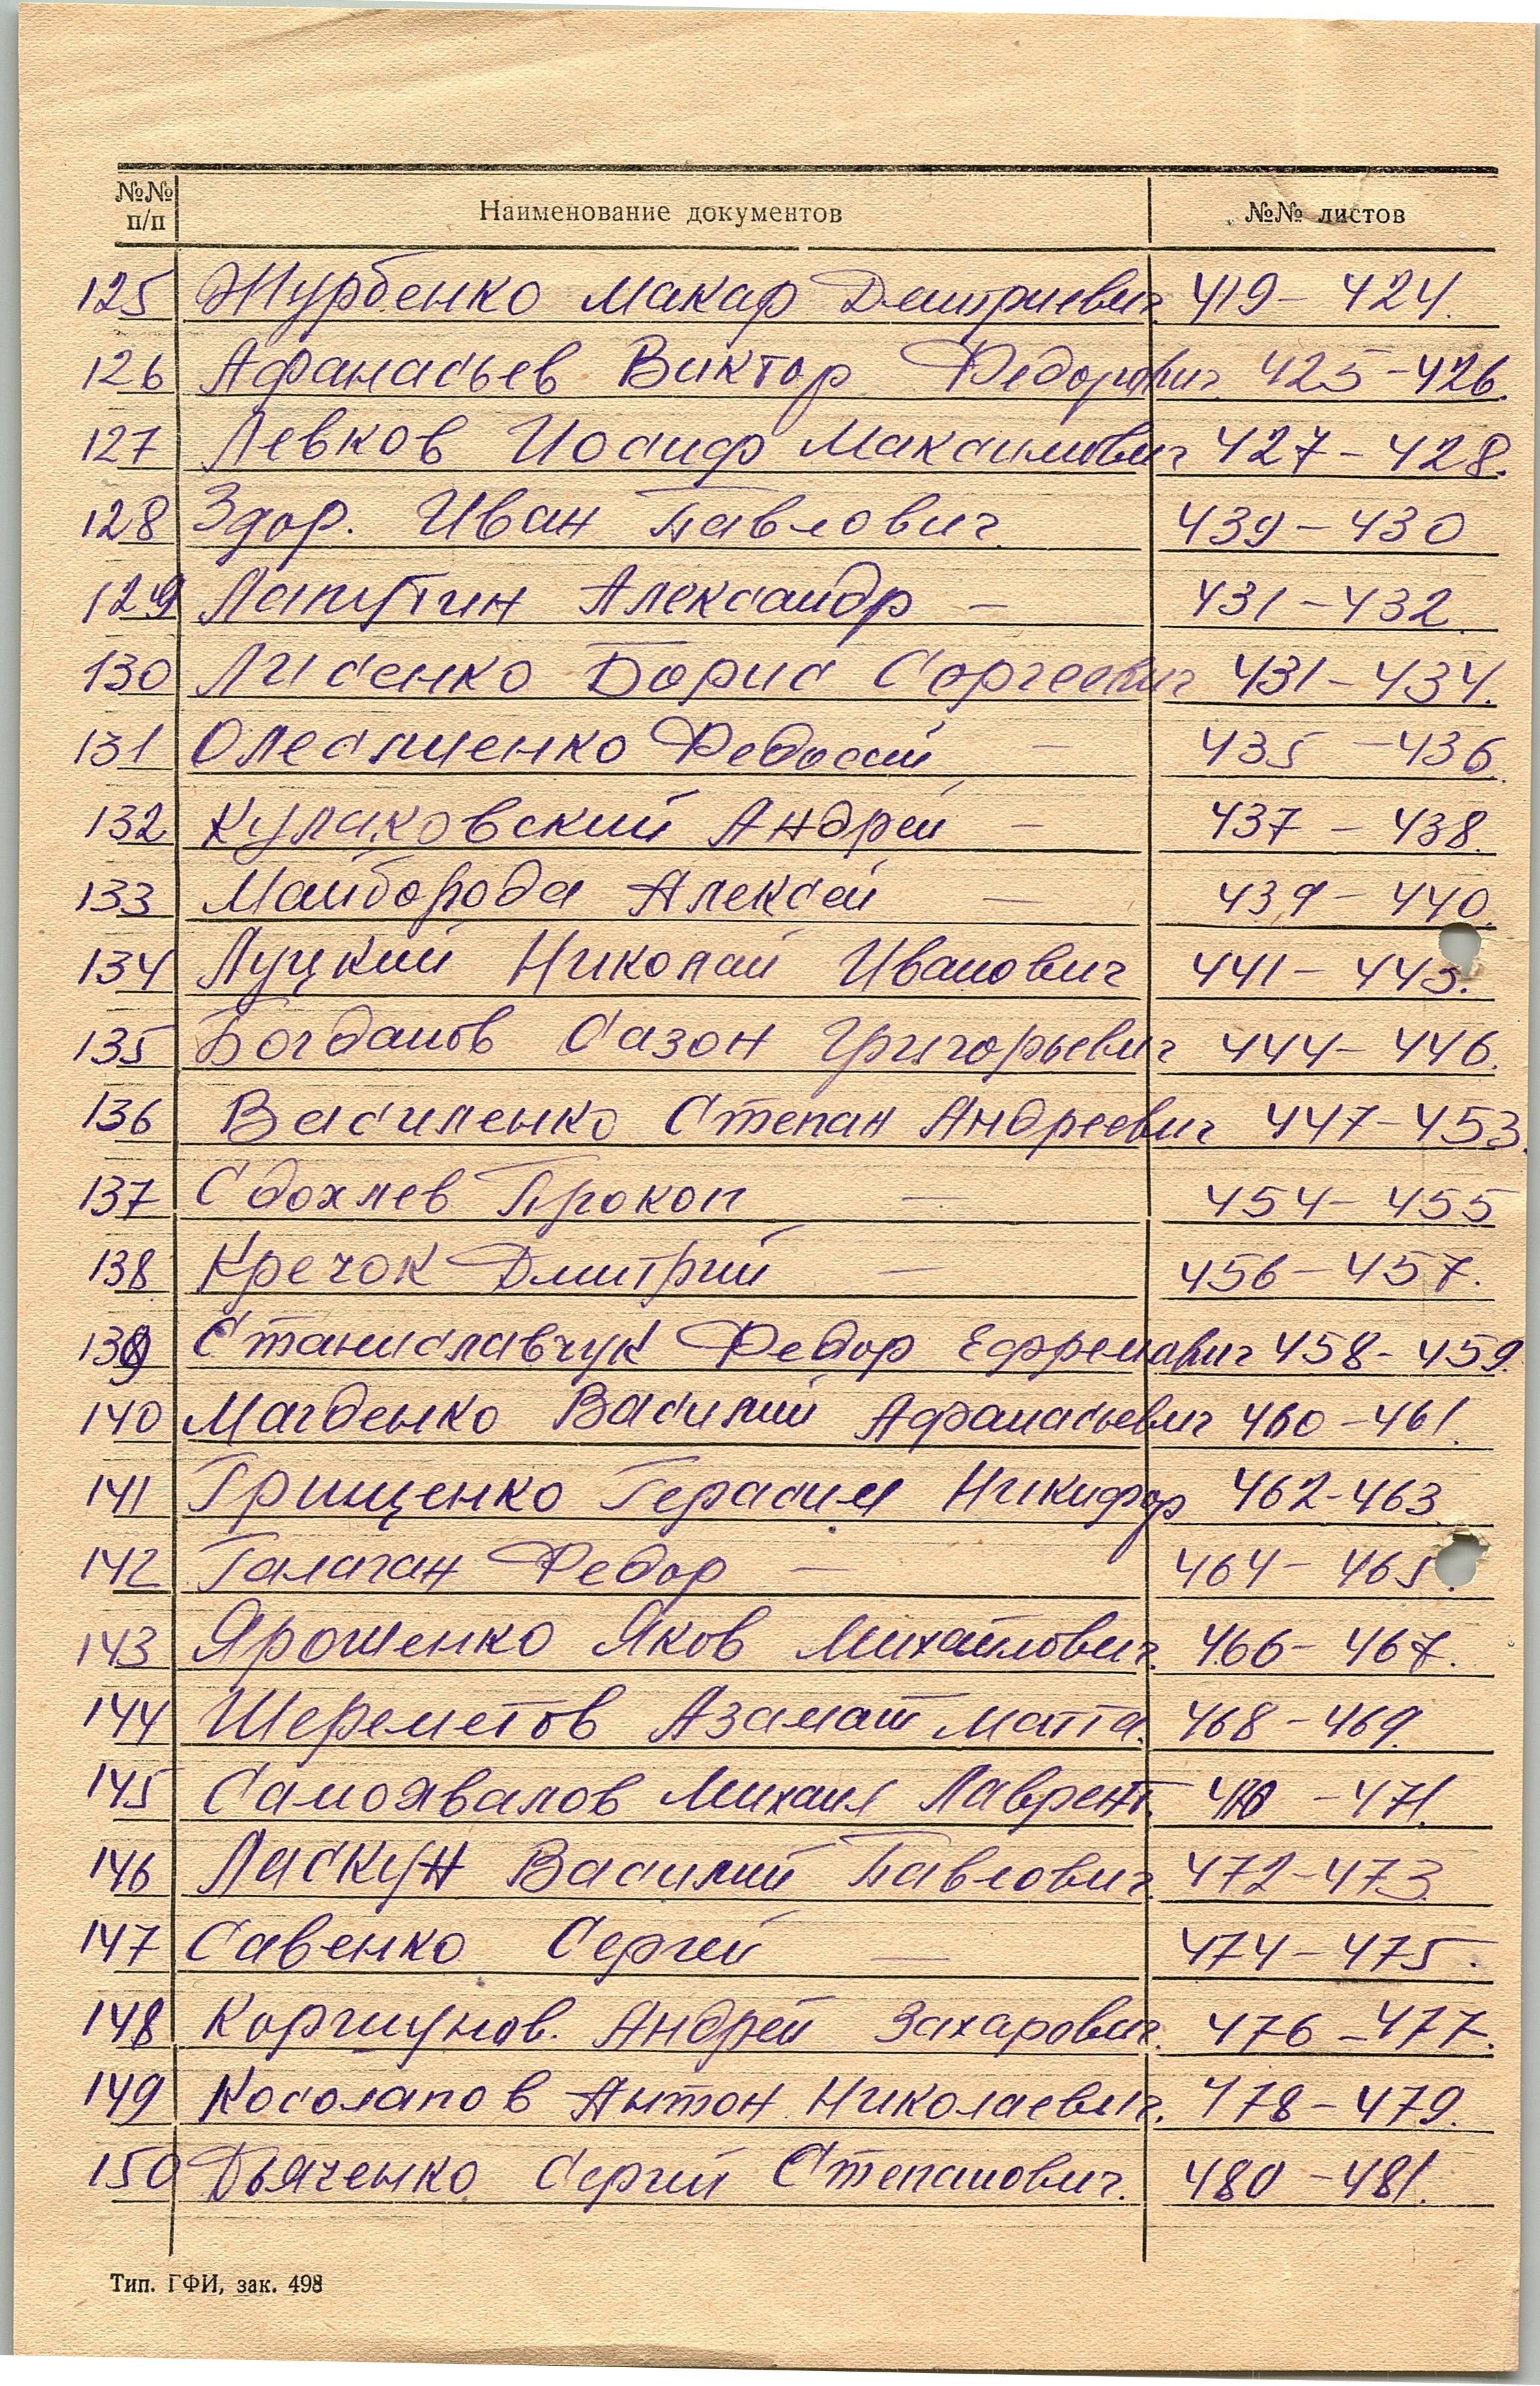 №№ п/п Наименование документов №№ листов
125 Журбенко Макар Дмитриевич. 419 – 424.
126 Афанасьев Виктор Федорович 425 – 426.
127 Левков Иосиф Максимович 427 – 428.
128 Здор. Иван Павлович 439 – 430
129 Лапутин Александр – 431 – 432.
130 Лисенко Борис Сергеевич 431 – 434.
131 Олеспиенко Федосий – 435 – 436.
132 Кулаковский Андрей – 437 – 438.
133 Майборода Алексей – 439 – 440.
134 Луцкий Николай Иванович 441 – 443.
135 Богданов Сазон Григорьевич 444 – 446.
136 Василенко Степан Андреевич 447 – 453.
137 Сдохлев Прокоп – 454 – 455
138 Кречок Дмитрий – 456 – 457.
139 Станиславчук Федор Ефремович 458 – 459.
140 Магденко Василий Афанасьевич 460 – 461.
141 Грищенко Герасим Никифор 462 – 463
142 Галаган Федор – 464 – 465.
143 Ярошенко Яков Михайлович. 466 – 467.
144 Шереметов Азамат Матта. 468 – 469.
145 Самохвалов Михаил Лаврент. 470 – 471.
146 Ласкун Василий Павлович. 472 – 473
147 Савенко Сергей – 474 – 475.
148 Коршунов. Андрей Захарович. 476 – 477.
149 Косолапов Антон Николаевич. 478 – 479.
150 Дьяченко Сергей Степанович. 480 – 481.
Тип. ГФИ, зак. 498